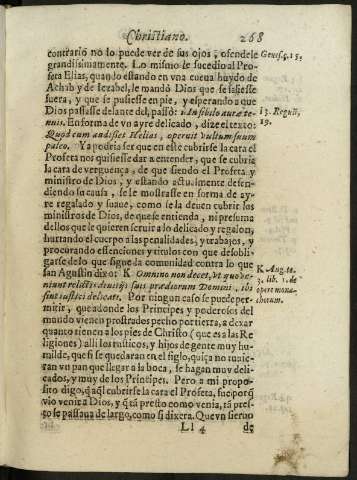 Christiano. 268
contrario no lo puede ver de sus ojos, ofendele Genes. 9. 15.
grandissimamente. Lo mismo le sucedio al Pro-
feta Elias, quando estando en vna cueua huydo de
Achab y de Iezabel, le mandò Dios que se saliesse
fuera, y que se pusiesse en pie, y esperando a que
Dios passasse delante del, passò: In sibilo auræ te-
nuis. En forma de vn ayre delicado, dize el texto:
Quod cum audisset Helias, operuit vultum suum
paleo. Ya podria ser que en este cubrirse la cara el
Profeta nos quisiesse dar a entender, que se cubria
la cara de verguença, de que siendo el Profeta y
ministro de Dios, y estando actualmente defen-
diendo su causa, se le mostrasse en forma de ay-
re regalado y suaue, como se la deuen cubrir los
ministros de Dios, de que se entienda, ni presuma
dellos que le quieren seruir a lo delicado y regalon,
hurtando el cuerpo a las penalidades, y trabajos, y
procurando essenciones y titulos con que desobli-
garse de lo que sigue la comunidad contra lo que
san Agustin dixo: K Omnino non decet, vt quo ve-
niunt relictis delitijs suis prædiorum Domini, ibi
sint rustici delicati. Por ningun caso se puede per-
mitir, que adonde los Principes y poderosos del
mundo vienen prostrados pecho por tierra, a dexar
quanto tienen a los pies de Christo (que es a las Re-
ligiones) alli los rusticos, y hijos de gente muy hu-
milde, que si se quedaran en el siglo, quiçà no tuuie-
ran vn pan que llegar a la boca, se hagan muy deli-
cados, y muy de los Principes. Pero a mi propo-
sito digo, q̃ aq̃l cubrirse la cara el Profeta, fue porq̃
vio venir a Dios, y q̃ tã presto como venia, tã pres-
to se passaua de largo, como si dixera. Que vn sieruo
Ll 4 de
13. Regũ,
19.
K Aug. to.
3. lib. 1. de
opere mona-
chorum.